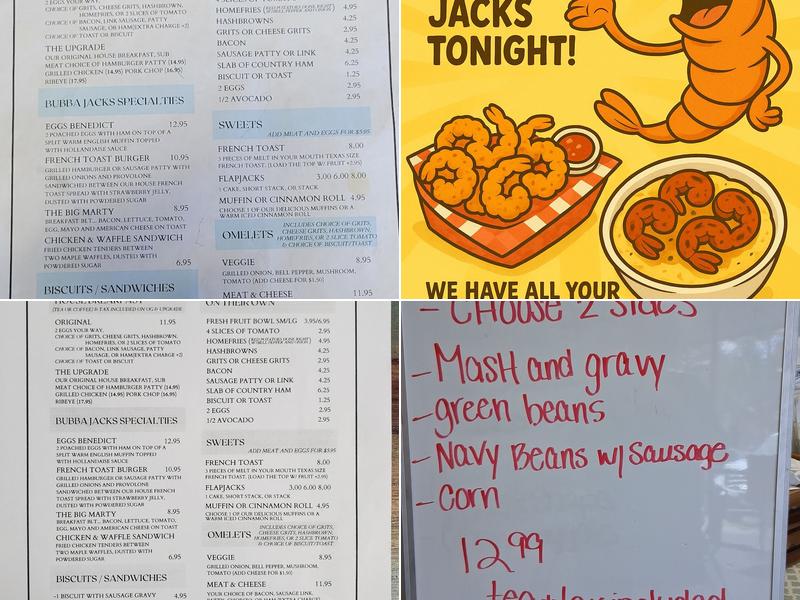 2 EGGS YOUR WAY,
CHOICE OF GRITS, CHEESE GRITS, HASHBROWN,
HOMEFRIES, OR 2 SLICES OF TOMATO
CHOICE OF BACON, LINK SAUSAGE, PATTY
SAUSAGE, OR HAM(EXTRA CHARGE +2)
CHOICE OF TOAST OR BISCUIT
THE UPGRADE
OUR ORIGINAL HOUSE BREAKFAST, SUB
MEAT CHOICE OF HAMBURGER PATTY (14.95)
GRILLED CHICKEN (14.95) PORK CHOP (16.95)
RIBEYE (17.95)
BUBBA JACKS SPECIALTIES
EGGS BENEDICT 12.95
2 POACHED EGGS WITH HAM ON TOP OF A
SPLIT WARM ENGLISH MUFFIN TOPPED
WITH HOLLANDAISE SAUCE
FRENCH TOAST BURGER 10.95
GRILLED HAMBURGER OR SAUSAGE PATTY WITH
GRILLED ONIONS AND PROVOLONE
SANDWICHED BETWEEN OUR HOUSE FRENCH
TOAST SPREAD WITH STRAWBERRY JELLY,
DUSTED WITH POWDERED SUGAR
THE BIG MARTY 8.95
BREAKFAST BLT... BACON, LETTUCE, TOMATO,
EGG, MAYO AND AMERICAN CHEESE ON TOAST
CHICKEN & WAFFLE SANDWICH
FRIED CHICKEN TENDERS BETWEEN
TWO MAPLE WAFFLES, DUSTED WITH
POWDERED SUGAR 6.95
BISCUITS / SANDWICHES
HOMEFRIES 4.95
HASHBROWNS 4.25
GRITS OR CHEESE GRITS 2.95
BACON 4.25
SAUSAGE PATTY OR LINK 4.25
SLAB OF COUNTRY HAM 6.25
BISCUIT OR TOAST 1.25
2 EGGS 2.95
1/2 AVOCADO 2.95
SWEETS
ADD MEAT AND EGGS FOR $5.95
FRENCH TOAST 8.00
3 PIECES OF MELT IN YOUR MOUTH TEXAS SIZE
FRENCH TOAST. [LOAD THE TOP W/ FRUIT +2.95]
FLAPJACKS 3.00 6.00 8.00
1 CAKE, SHORT STACK, OR STACK
MUFFIN OR CINNAMON ROLL 4.95
CHOOSE 1 OF OUR DELICIOUS MUFFINS OR A
WARM ICED CINNAMON ROLL
OMELETS
INCLUDES CHOICE OF GRITS,
CHEESE GRITS, HASHBROWN,
HOMEFRIES, OR 2 SLICE TOMATO
& CHOICE OF BISCUIT/TOAST
VEGGIE 8.95
GRILLED ONION, BELL PEPPER, MUSHROOM,
TOMATO [ADD CHEESE FOR $1.50]
MEAT & CHEESE 11.95
JACKS
TONIGHT!
WE HAVE ALL YOUR
HOUSE BREAKFAST
(TEA OR COFFEE) & TAX INCLUDED ON OG & UPGRADE
ORIGINAL 11.95
2 EGGS YOUR WAY,
CHOICE OF GRITS, CHEESE GRITS, HASHBROWN,
HOMEFRIES, OR 2 SLICES OF TOMATO
CHOICE OF BACON, LINK SAUSAGE, PATTY
SAUSAGE, OR HAM(EXTRA CHARGE +2)
CHOICE OF TOAST OR BISCUIT
THE UPGRADE
OUR ORIGINAL HOUSE BREAKFAST, SUB
MEAT CHOICE OF HAMBURGER PATTY (14.95)
GRILLED CHICKEN (14.95) PORK CHOP (16.95)
RIBEYE (17.95)
BUBBA JACKS SPECIALTIES
EGGS BENEDICT 12.95
2 POACHED EGGS WITH HAM ON TOP OF A
SPLIT WARM ENGLISH MUFFIN TOPPED
WITH HOLLANDAISE SAUCE
FRENCH TOAST BURGER 10.95
GRILLED HAMBURGER OR SAUSAGE PATTY WITH
GRILLED ONIONS AND PROVOLONE
SANDWICHED BETWEEN OUR HOUSE FRENCH
TOAST SPREAD WITH STRAWBERRY JELLY,
DUSTED WITH POWDERED SUGAR
THE BIG MARTY 8.95
BREAKFAST BLT... BACON, LETTUCE, TOMATO,
EGG, MAYO AND AMERICAN CHEESE ON TOAST
CHICKEN & WAFFLE SANDWICH
FRIED CHICKEN TENDERS BETWEEN
TWO MAPLE WAFFLES, DUSTED WITH
POWDERED SUGAR 6.95
BISCUITS / SANDWICHES
-1 BISCUIT WITH SAUSAGE GRAVY 4.95
ON THEIR OWN
FRESH FRUIT BOWL SM/LG 3.95/6.95
4 SLICES OF TOMATO 2.95
HOMEFRIES 4.95
HASHBROWNS 4.25
GRITS OR CHEESE GRITS 2.95
BACON 4.25
SAUSAGE PATTY OR LINK 4.25
SLAB OF COUNTRY HAM 6.25
BISCUIT OR TOAST 1.25
2 EGGS 2.95
1/2 AVOCADO 2.95
SWEETS
ADD MEAT AND EGGS FOR $5.95
FRENCH TOAST 8.00
3 PIECES OF MELT IN YOUR MOUTH TEXAS SIZE
FRENCH TOAST. [LOAD THE TOP W/ FRUIT +2.95]
FLAPJACKS 3.00 6.00 8.00
1 CAKE, SHORT STACK, OR STACK
MUFFIN OR CINNAMON ROLL 4.95
CHOOSE 1 OF OUR DELICIOUS MUFFINS OR A
WARM ICED CINNAMON ROLL
OMELETS
INCLUDES CHOICE OF GRITS,
CHEESE GRITS, HASHBROWN,
HOMEFRIES, OR 2 SLICE TOMATO
& CHOICE OF BISCUIT/TOAST
VEGGIE 8.95
GRILLED ONION, BELL PEPPER, MUSHROOM,
TOMATO [ADD CHEESE FOR $1.50]
MEAT & CHEESE 11.95
YOUR CHOICE OF BACON, SAUSAGE LINK,
- CHOOSE 2 sides
- Mash and gravy
- green beans
- Navy Beans w/ Sausage
- Corn
12.99
tea + tax included